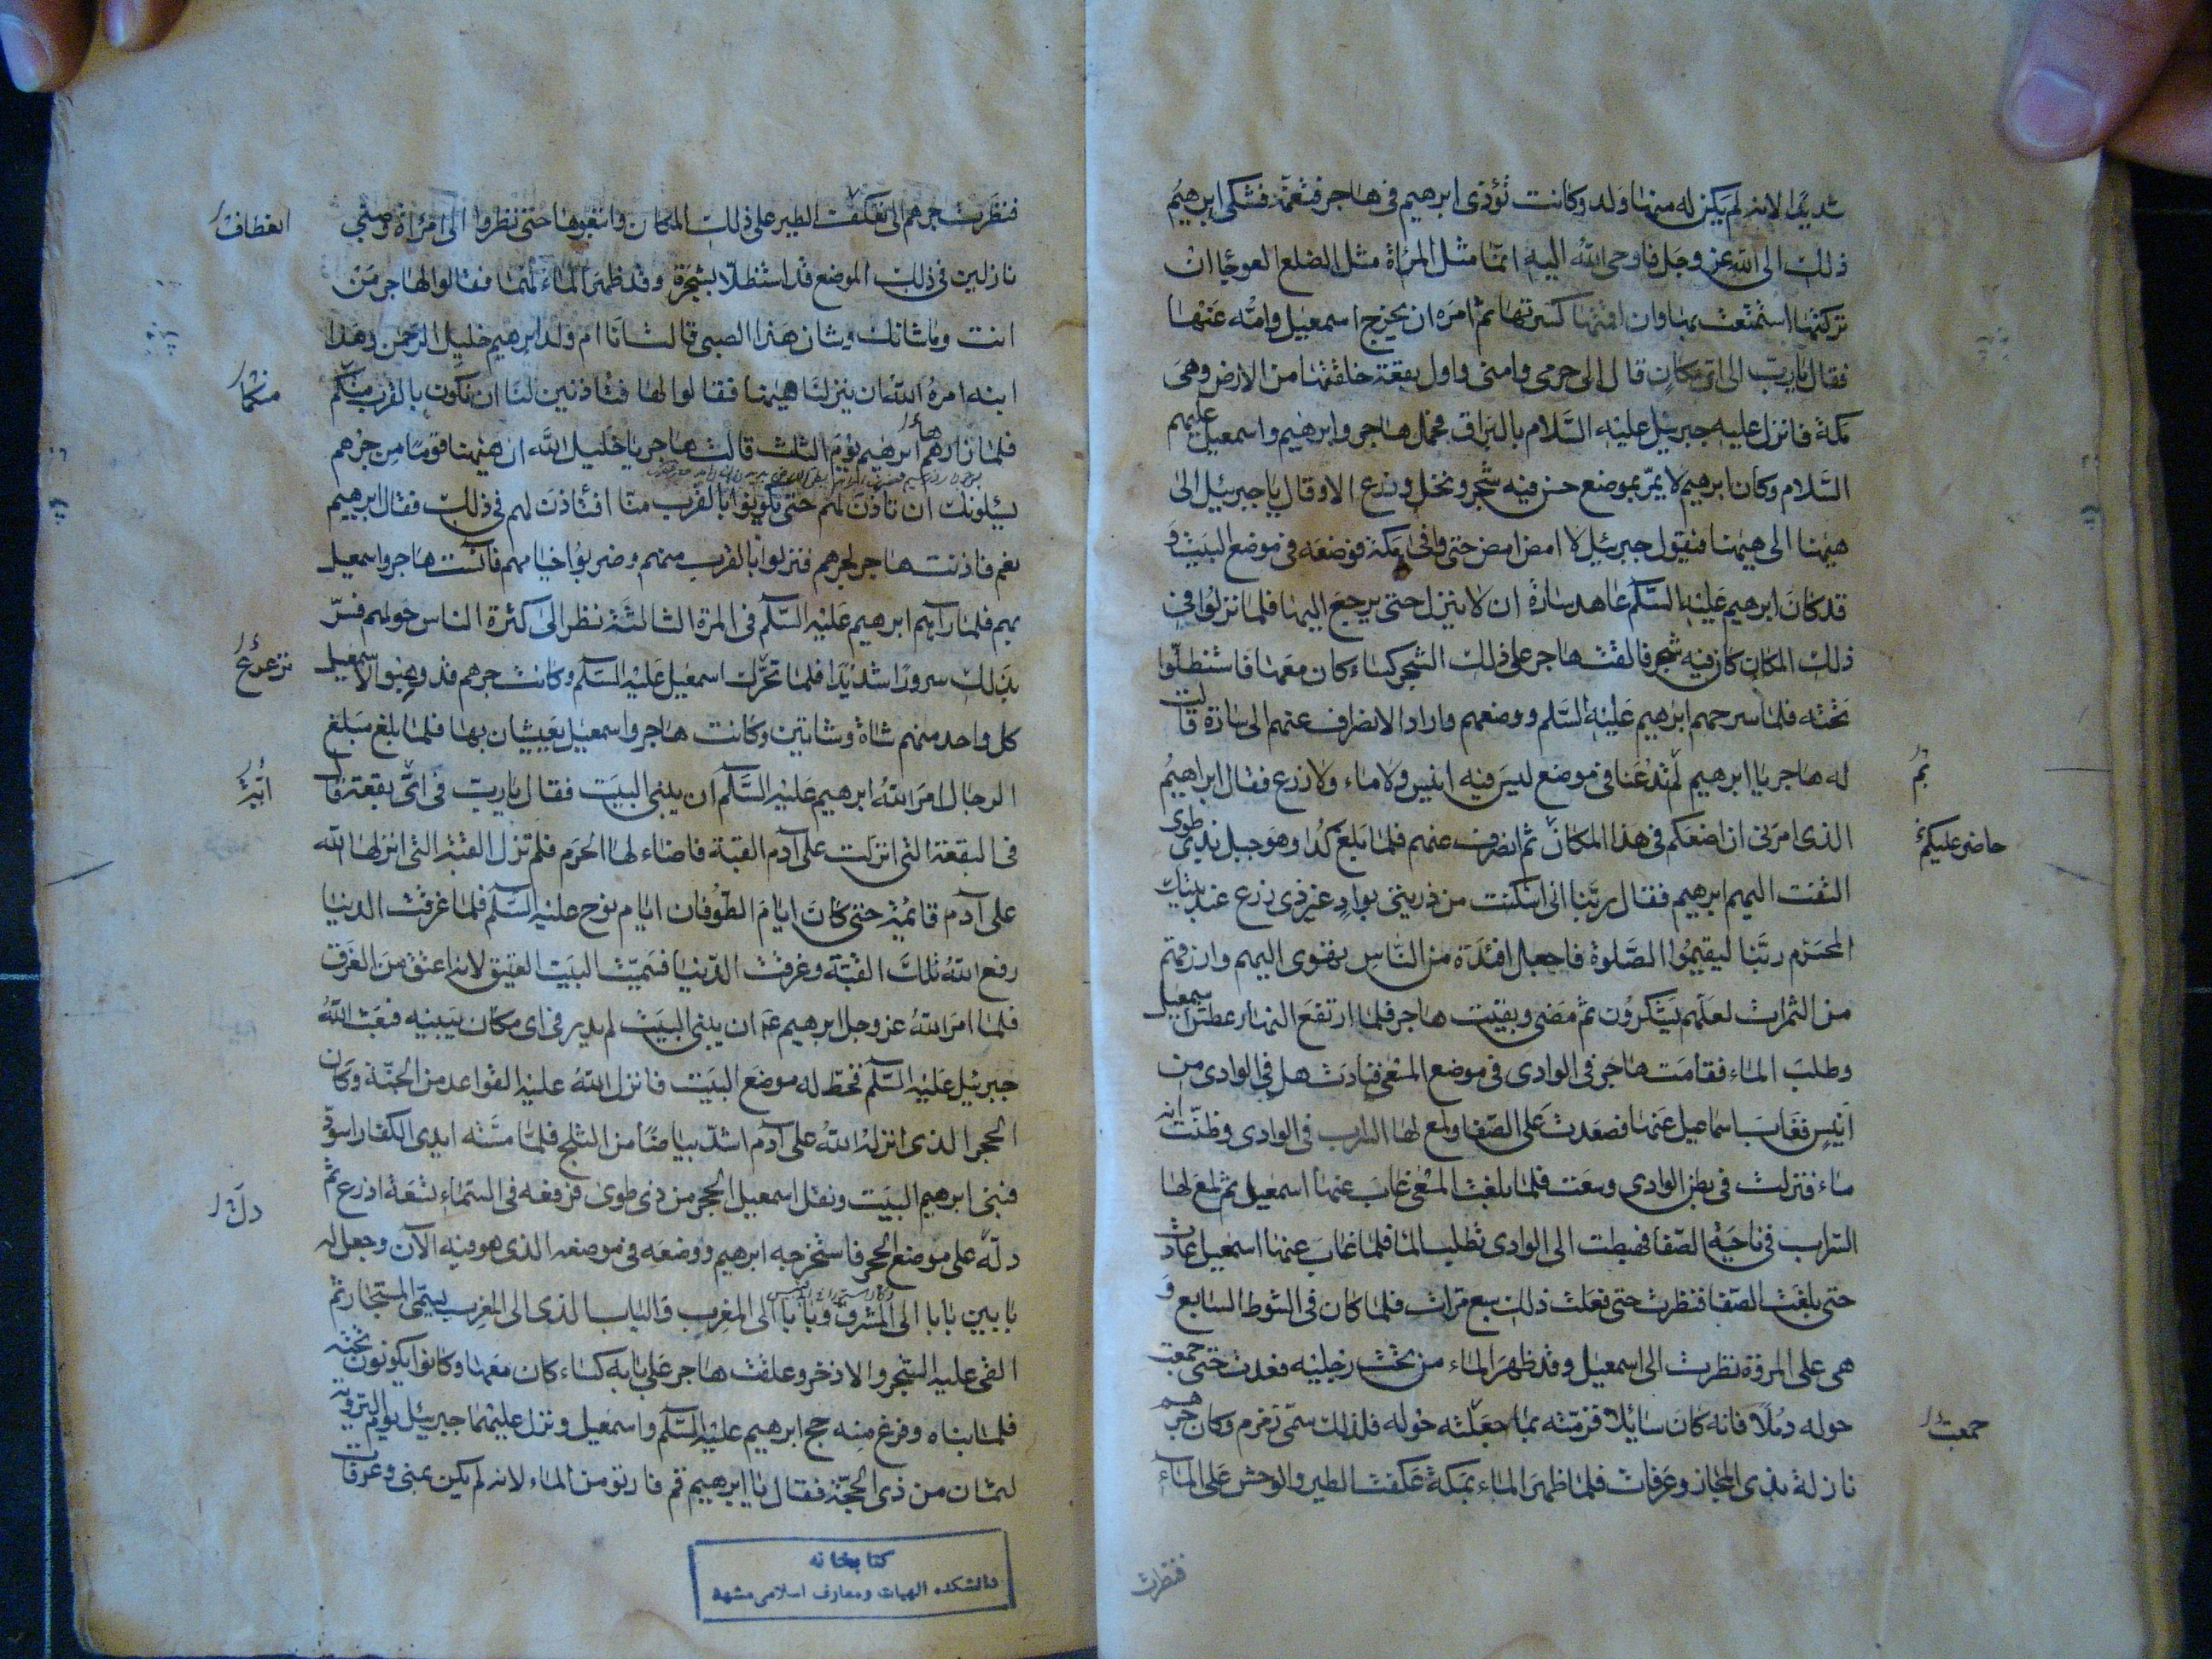 شديدا لانه لم يكن له منها ولد وكانت تؤذى ابرهيم فى هاجر فتغمه فشكى ابرهيم
ذلك الى الله عز وجل فاوحى الله اليه انما مثل المرأة مثل الضلع العوجا ان
تركتها استمتعت بها وان اقمتها كسرتها ثم امره ان يخرج اسمعيل وامه عنها
فقال يا رب الى اى مكان قال الى حرمى وامنى واول بقعة خلقتها من الارض وهى
مكة فانزل عليه جبرئيل عليه السلام بالبراق فحمل هاجر وابرهيم واسمعيل عليهم
السلام وكان ابرهيم لا يمر بموضع حسن فيه شجر ونخل وزرع الا وقال يا جبرئيل الى
هيهنا الى هيهنا فيقول جبرئيل لا امض امض حتى وافى مكة فوضعه فى موضع البيت و
قد كان ابرهيم عليه السلم عاهد سارة ان لا ينزل حتى يرجع اليها فلما نزلوا فى
ذلك المكان كان فيه شجر فالقت هاجر على ذلك الشجر كساء كان معها فاستظلوا
تحته فلما سرحهم ابرهيم عليه السلم ووضعهم واراد الانصراف عنهم الى سارة قالت
له هاجر يا ابرهيم لم تدعنا فى موضع ليس فيه انيس ولا ماء ولا زرع فقال ابراهيم
الذى امرنى ان اضعكم فى هذا المكان ثم انصرف عنهم فلما بلغ كدا وهو جبل بذى طوى
التفت اليهم ابرهيم فقال ربنا انى اسكنت من ذريتى بواد غير ذى زرع عند بيتك
المحرم ربنا ليقيموا الصلوة فاجعل افئدة من الناس تهوى اليهم وارزقهم
من الثمرات لعلهم يشكرون ثم مضى وبقيت هاجر فلما ارتفع النهار عطش اسمعيل
وطلب الماء فقامت هاجر فى الوادى فى موضع المسعى فنادت هل فى الوادى من
انيس فغاب اسماعيل عنها فصعدت على الصفا ولمع لها السراب فى الوادى وظنت انه
ماء فنزلت فى بطن الوادى وسعت فلما بلغت المسعى غاب عنها اسمعيل ثم لمع لها
السراب فى ناحية الصفا فهبطت الى الوادى تطلب الما فلما غاب عنها اسمعيل عادت
حتى بلغت الصفا فنظرت حتى فعلت ذلك سبع مرات فلما كان فى الشوط السابع و
هى على المروة نظرت الى اسمعيل وقد ظهر الماء من تحت رجليه فعدت حتى جمعت
حوله رملا فانه كان سايلا فزمته بما جعلته حوله فلذلك سمى زمزم وكان جرهم
نازلة بذى المجاز وعرفات فلما ظهر الماء بمكة عكفت الطير والوحش على الماء
ثم
حاضر عليكم
جمعت
فنظرت
فنظرت جرهم الى تعكفت الطير على ذلك المكان واتبعوها حتى نظروا الى امرأة وصبى
نازلين فى ذلك الموضع قد استظلا بشجرة وقد ظهر الماء لهما فقالوا لهاجر من
انت وما شانك وشان هذا الصبى قالت انا ام ولد ابرهيم خليل الرحمن وهذا
ابنه امره الله ان ينزلنا هيهنا فقالوا لها فتاذنين لنا ان نكون بالقرب منكم
فلما زارهم ابرهيم يوم الثلث قالت هاجر يا خليل الله ان هيهنا قوما من جرهم
يسئلونك ان تاذن لهم حتى يكونوا بالقرب منا افتاذن لهم فى ذلك فقال ابرهيم
نعم فاذنت هاجر لجرهم فنزلوا بالقرب منهم وضربوا خيامهم فانست هاجر واسمعيل
بهم فلما رآهم ابرهيم عليه السلم فى المرة الثالثة نظر الى كثرة الناس حولهم فسر
بذلك سرورا شديدا فلما تحرك اسمعيل عليه السلم وكانت جرهم قد وهبوا لاسمعيل
كل واحد منهم شاة وشاتين وكانت هاجر واسمعيل يعيشان بها فلما بلغ مبلغ
الرجال امر الله ابرهيم عليه السلم ان يبنى البيت فقال يا رب فى اى بقعة قال
فى البقعة التى انزلت على آدم القبة فاضاء لها الحرم فلم تزل القبة التى انزلها الله
على آدم قائمة حتى كان ايام الطوفان ايام نوح عليه السلم فلما غرقت الدنيا
رفع الله تلك القبة وغرقت الدنيا فسميت البيت العتيق لانه اعتق من الغرق
فلما امر الله عز وجل ابرهيم ع ان يبنى البيت لم يدر فى اى مكان يبنيه فبعث الله
جبرئيل عليه السلم فخط له موضع البيت فانزل الله عليه القواعد من الجنة وكان
الحجر الذى انزله الله على آدم اشد بياضا من الثلج فلما مسته ايدى الكفار اسود
فبنى ابرهيم البيت ونقل اسمعيل الحجر من ذى طوى فرفعه فى السماء تسعة اذرع ثم
دله على موضع الحجر فاستخرجه ابرهيم ووضعه فى موضعه الذى هو فيه الآن وجعل له
بابين بابا الى المشرق وبابا الى المغرب والباب الذى الى المغرب يسمى المستجار ثم
القى عليه الشجر والاذخر وعلقت هاجر على بابه كساء كان معها وكانوا يكونون تحته
فلما بناه وفرغ منه حج ابرهيم عليه السلم واسمعيل ونزل عليهما جبرئيل يوم التروية
لثمان من ذى الحجة فقال يا ابرهيم قم فارتو من الماء لانه لم يكن بمنى وعرفات
منكما
ترعرع
دل
كتابخانه
دانشكده الهيات ومعارف اسلامى مشهد